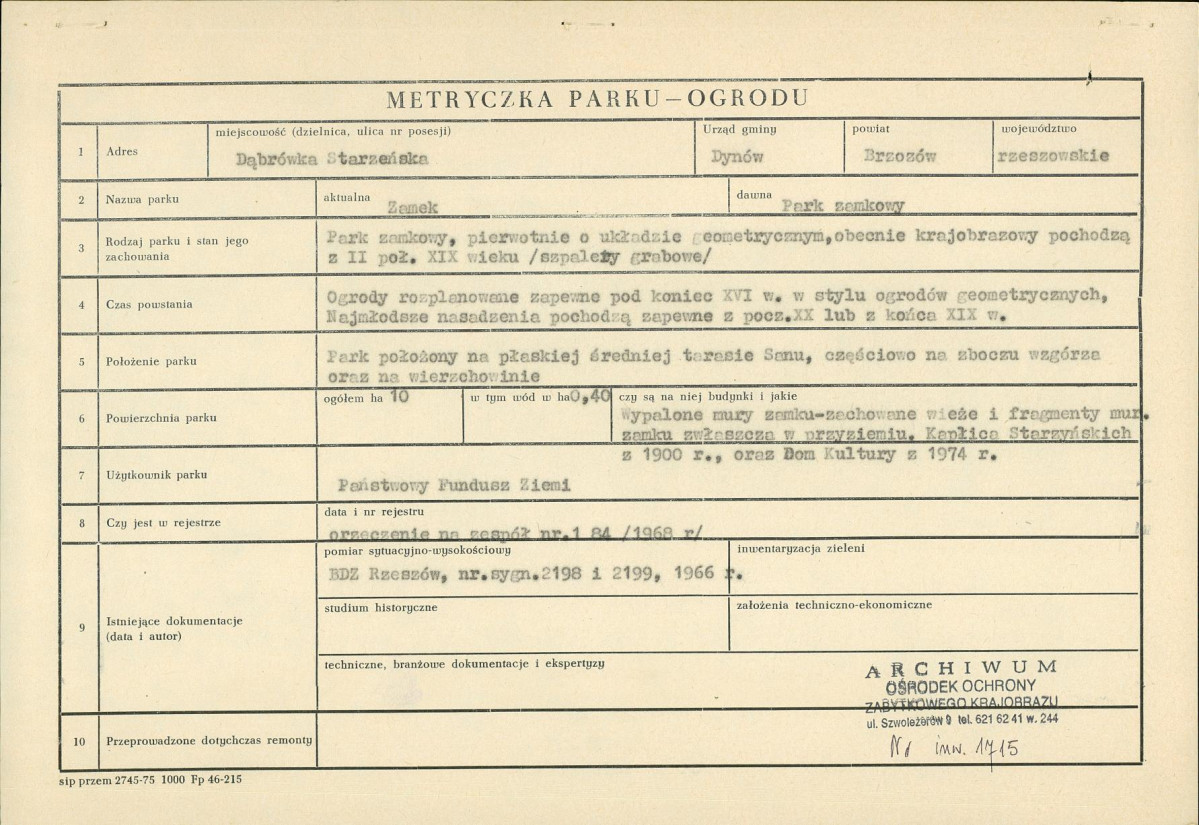 METRYCZKA PARKU–OGRODU
1 Adres
miejscowość (dzielnica, ulica nr posesji)
Dąbrówka Starzeńska
Urząd gminy
Dynów
powiat
Brzozów
województwo
rzeszowskie
2 Nazwa parku
aktualna
Zamek
dawna
Park zamkowy
3 Rodzaj parku i stan jego
zachowania
Park zamkowy, pierwotnie o układzie geometrycznym,obecnie krajobrazowy pochodzą
z II poł. XIX wieku /szpalery grabowe/
4 Czas powstania
Ogrody rozplanowane zapewne pod koniec XVI w. w stylu ogrodów geometrycznych,
Najmłodsze nasadzenia pochodzą zapewne z pocz.XX lub z końca XIX w.
5 Położenie parku
Park położony na płaskiej średniej tarasie Sanu, częściowo na zboczu wzgórza
oraz na wierzchowinie
6 Powierzchnia parku
ogółem ha 10
w tym wód w ha 0,40
czy są na niej budynki i jakie
Wypalone mury zamku-zachowane wieże i fragmenty mur.
zamku zwłaszcza w przyziemiu. Kaplica Starzyńskich
z 1900 r., oraz Dom Kultury z 1974 r.
7 Użytkownik parku
Państwowy Fundusz Ziemi
8 Czy jest w rejestrze
data i nr rejestru
orzeczenie na zespół nr.1 84 /1968 r/
9 Istniejące dokumentacje
(data i autor)
pomiar sytuacyjno-wysokościowy
BDZ Rzeszów, nr.sygn.2198 i 2199, 1966 r.
inwentaryzacja zieleni
studium historyczne
założenia techniczno-ekonomiczne
techniczne, branżowe dokumentacje i ekspertyzy
ARCHIWUM
OŚRODEK OCHRONY
ZABYTKOWEGO KRAJOBRAZU
ul. Szwoleżerów 9 tel. 621 62 41 w. 244
Nr inw. 1715
10 Przeprowadzone dotychczas remonty
sip przem 2745-75 1000 Fp 46-215